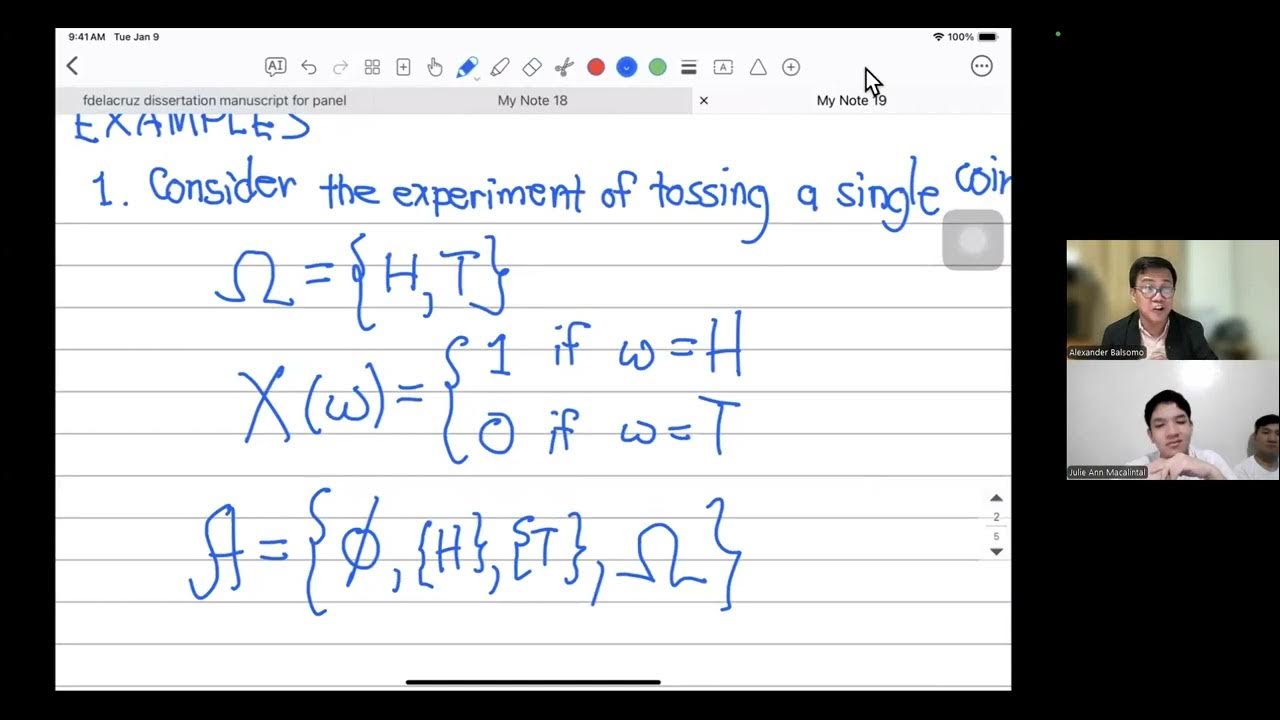 9:41 AM Tue Jan 9
100%
AI
A
fdelacruz dissertation manuscript for panel
My Note 18
× My Note 19
EXAMPLES
1. Consider the experiment of tossing a single coin
Ω = {H, T}
X(ω) = { 1 if ω = H
0 if ω = T
𝒜 = {∅, {H}, {T}, Ω}
2
5
Alexander Balsomo
Julie Ann Macalintal